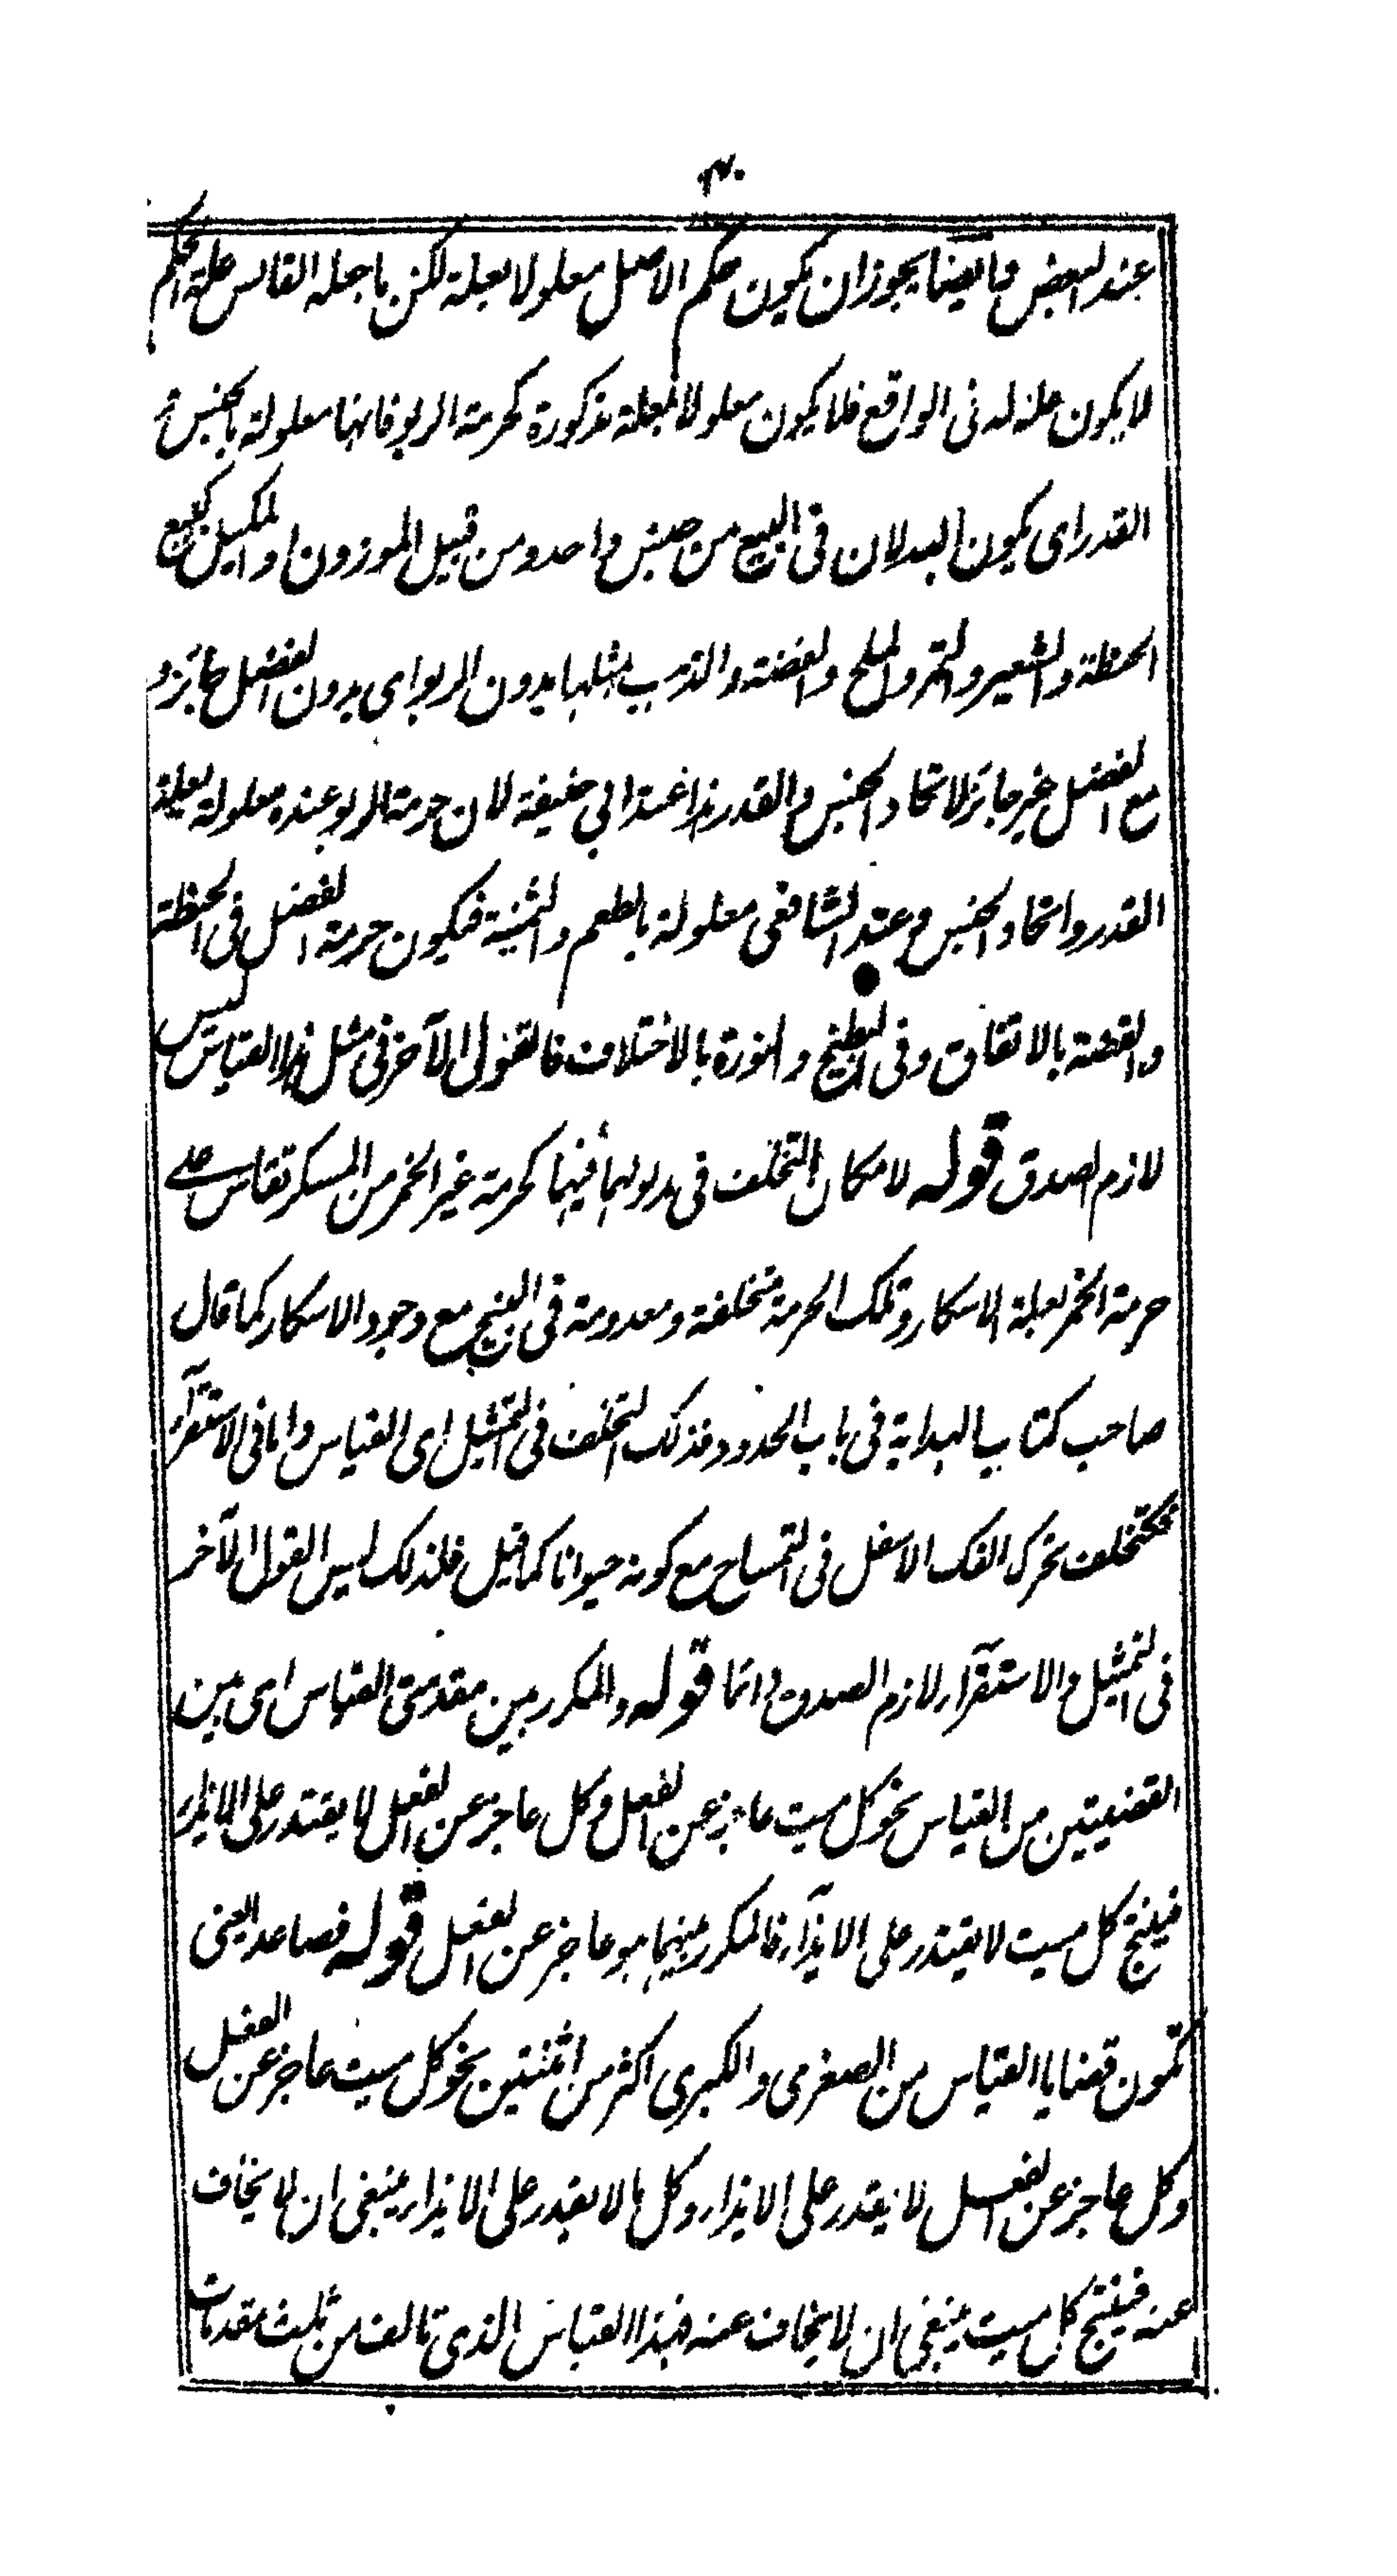 عند البعض وايضا يجوز ان يكون حكم الاصل معلولا بعلة لكن ما جعله القائس علة الحكم
لا يكون علة له فى الواقع فلا يكون معلولا بعلة مذكورة كحرمة الربو فانها معلولة بالجنس و
القدر اى يكون البدلان فى البيع من جنس واحد ومن قبيل الموزون او المكيل كبيع
الحنطة والشعير والتمر والملح والفضة والذهب بمثلها بدون الربوا اى بدون الفضل جائز و
مع الفضل غير جائز لاتحاد الجنس والقدر هذا عند ابى حنيفة لان حرمة الربو عنده معلولة بعلة
القدر واتحاد الجنس وعند الشافعى معلولة بالطعم والثمنية فيكون حرمة الفضل فى الحنطة
والفضة بالاتفاق وفى البطيخ والنورة بالاختلاف فالقول الآخر فى مثل هذا القياس ليس
لازم الصدق قوله لامكان التخلف فى مدلولهما فيهما كحرمة غير الخمر من المسكر تقاس على
حرمة الخمر بعلة الاسكار وتلك الحرمة متخلفة ومعدومة فى البنج مع وجود الاسكار كما قال
صاحب كتاب الهداية فى باب الحدود فذلك التخلف فى التمثيل اى القياس واما فى الاستقرآء
فكتخلف تحرك الفك الاسفل فى التمساح مع كونه حيوانا كما قيل فلذلك ليس القول الآخر
فى التمثيل والاستقرآء لازم الصدق دائما قوله والمكرر بين مقدمتى القياس اى بين
القضيتين من القياس نحو كل ميت عاجز عن الفعل وكل عاجز عن الفعل لا يقتدر على الايذاء
فينتج كل ميت لا يقتدر على الايذآء فالمكرر بينهما هو عاجز عن الفعل قوله فصاعدا يعنى
تكون قضايا القياس من الصغرى والكبرى اكثر من اثنتين نحو كل ميت عاجز عن الفعل
وكل عاجز عن الفعل لا يقتدر على الايذاء وكل ما لا يقدر على الايذاء ينبغى ان لا يخاف
عنه فينتج كل ميت ينبغى ان لا يخاف عنه فهذا القياس الذى تالف من ثلث مقدمات